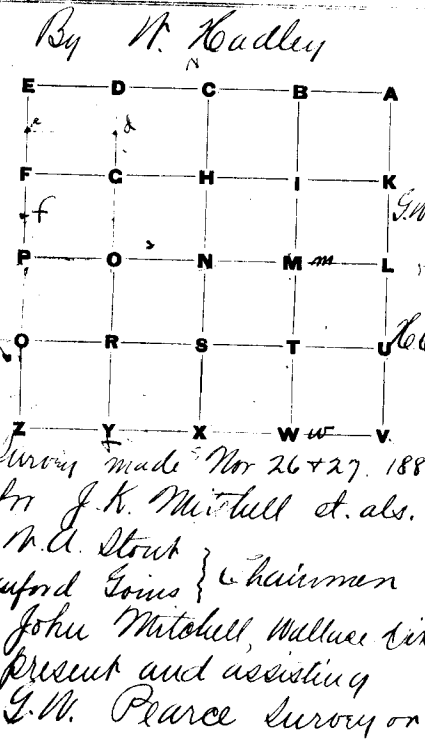 By W. Hadley
N
E D C B A
e d
F G H I K
f G.W
P O N M m L
s
Q R S T U
Z Y X W w V
Survey made Nov 26 + 27. 188
for J.K. Mitchell et. als.
W.A. Stout
Goins } Chainmen
John Mitchell, Wallace
present and assisting
G.W. Pearce Survey on